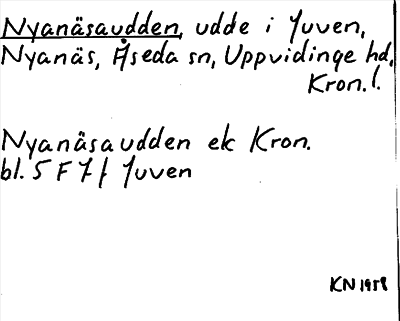 Nyanäsaudden, udde i Juven,
Nyanäs, Åseda sn, Uppvidinge hd,
Kron. l.
Nyanäsaudden ek Kron.
bl. 5 F 7 f Juven
KN 1958